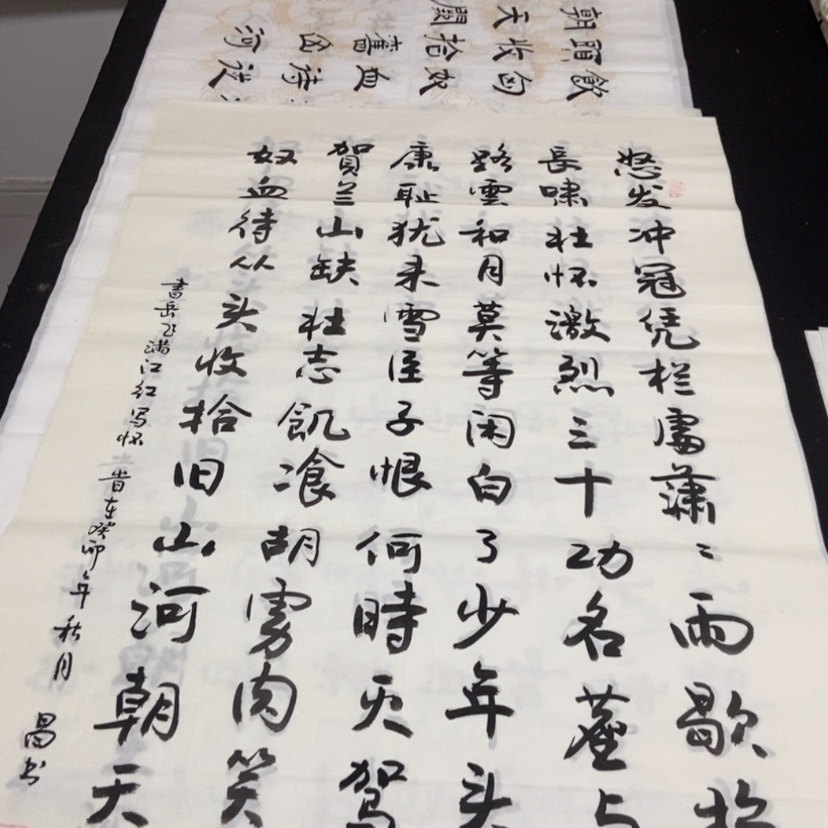 朝頭飲
天收匈
闕拾奴
舊血
待
河從
怒发冲冠凭栏處潇〻雨歇抬
長嘯壮怀激烈三十功名塵与
路雲和月莫等闲白了少年头
康耻犹未雪臣子恨何時灭駕
賀兰山缺壮志飢飡胡虏肉笑
奴血待从头收拾旧山河朝天
書岳飞满江红写怀 岁在癸卯年秋月 昌书